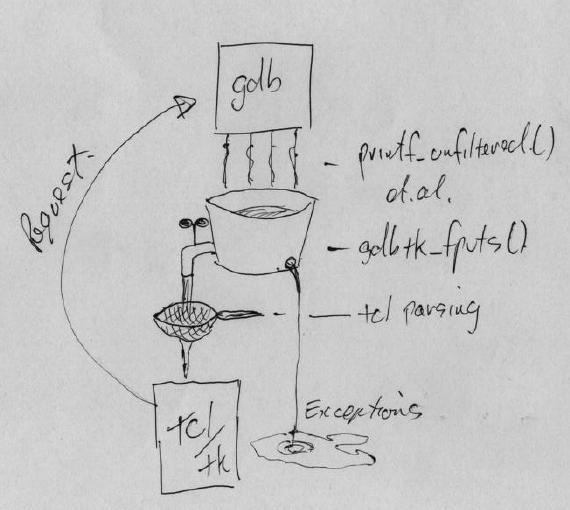 gdb
Request
printf_unfiltered()
et.al.
gdbtk_fputs()
tcl parsing
Exceptions
tcl/
tk